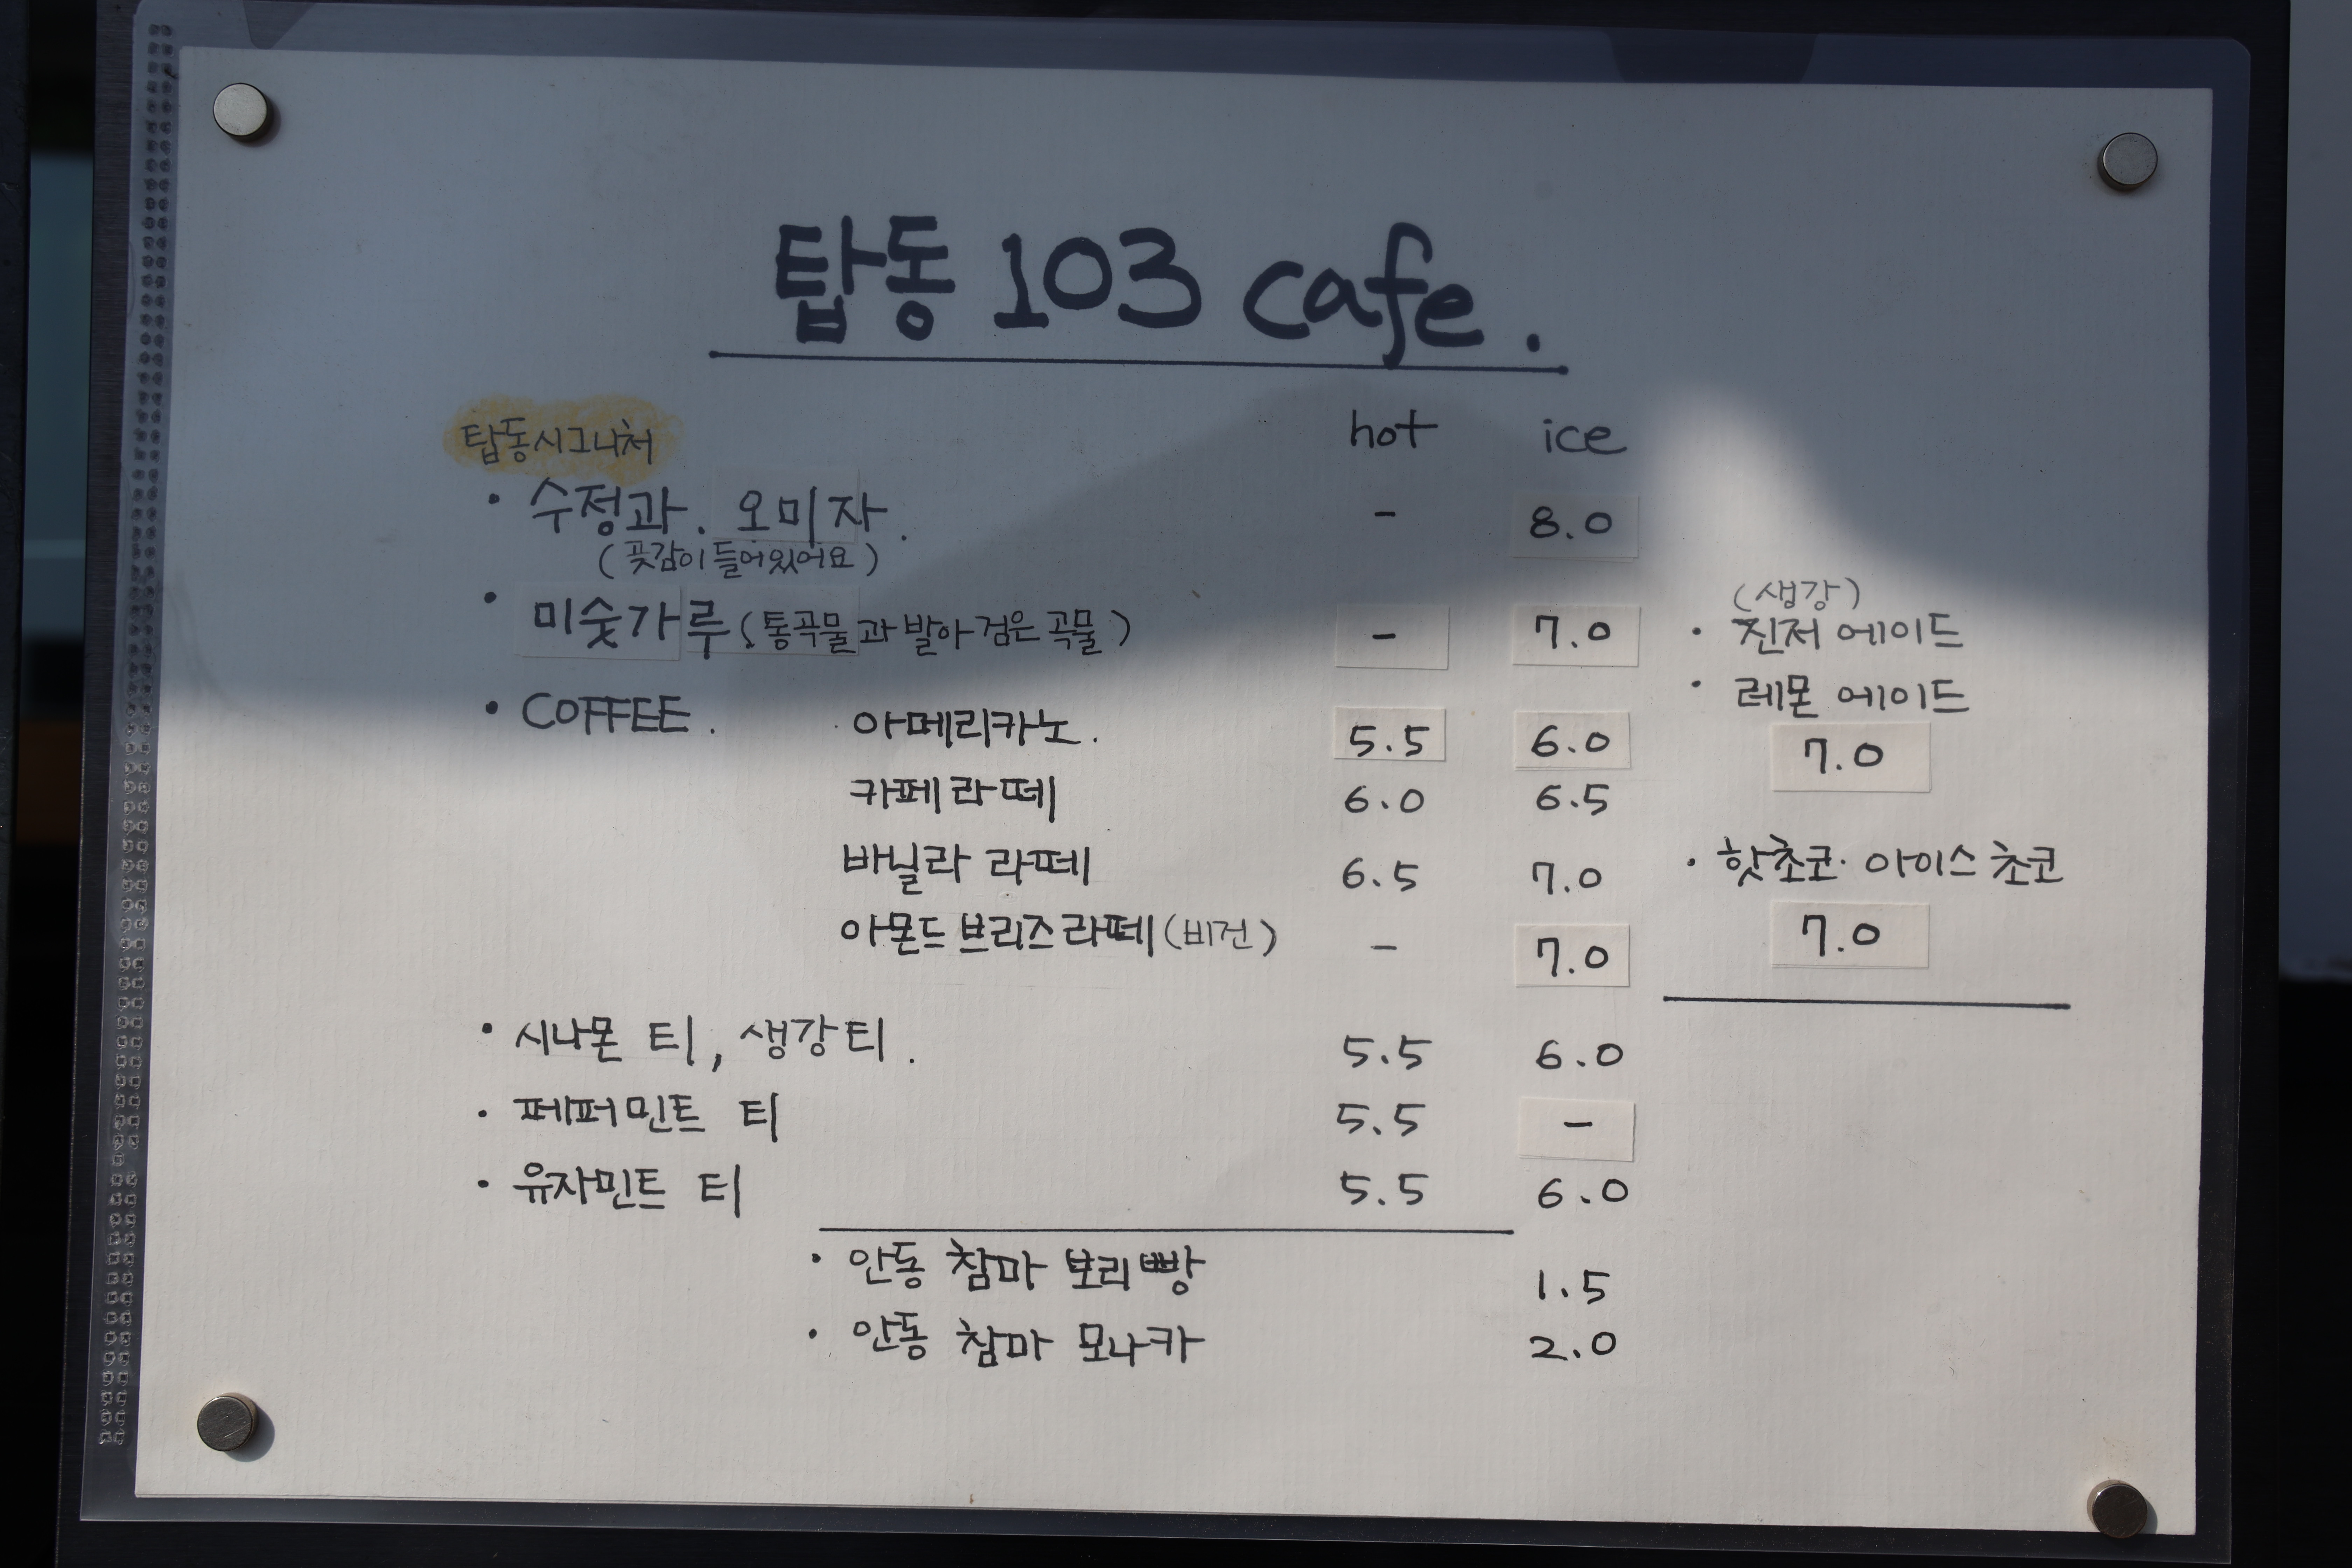 탑동 103 cafe.
탑동시그니처 hot ice
· 수정과. 오미자. - 8.0
(곶감이 들어있어요)
· 미숫가루 (통곡물과 발아 검은 곡물) - 7.0
· COFFEE. · 아메리카노. 5.5 6.0
카페라떼 6.0 6.5
바닐라 라떼 6.5 7.0
아몬드 브리즈 라떼 (비건) - 7.0
· 시나몬 티, 생강티. 5.5 6.0
· 페퍼민트 티 5.5 -
· 유자민트 티 5.5 6.0
· 안동 참마 보리빵 1.5
· 안동 참마 모나카 2.0
(생강)
· 진저 에이드
· 레몬 에이드
7.0
· 핫초코· 아이스 초코
7.0